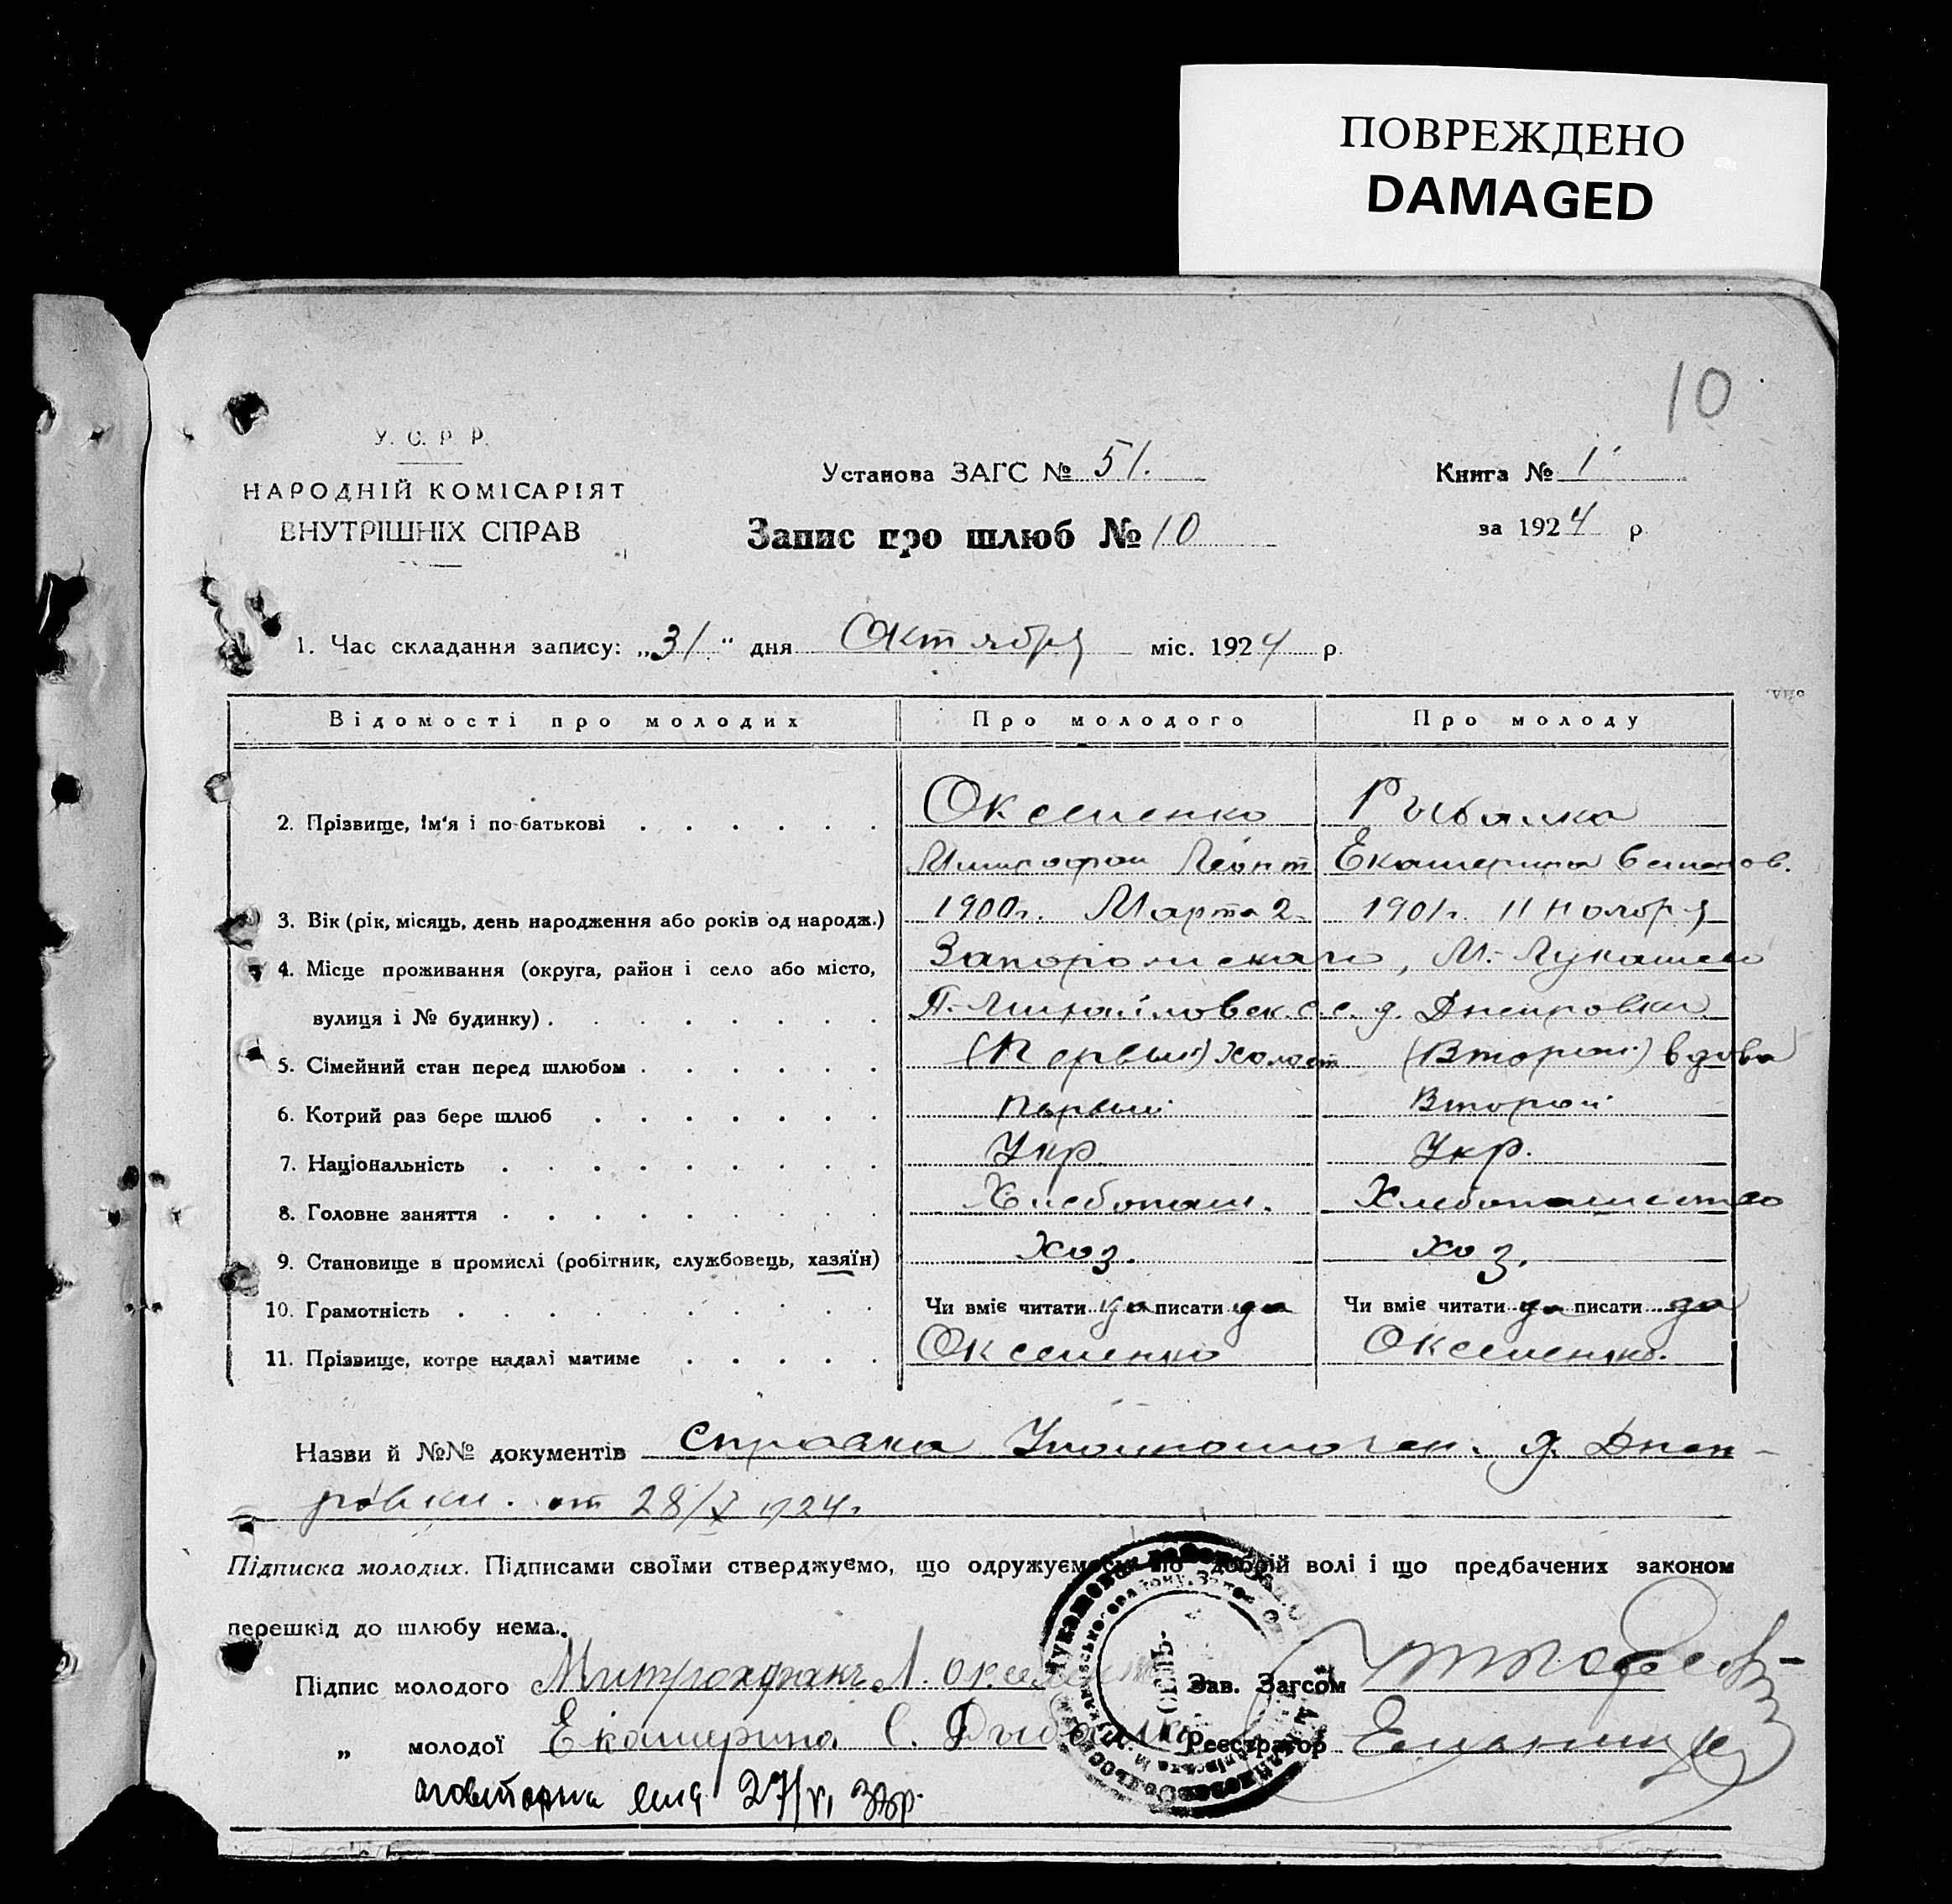 ПОВРЕЖДЕНО
DAMAGED
10
У. С. Р. Р.
НАРОДНІЙ КОМІСАРІЯТ
ВНУТРІШНІХ СПРАВ
Установа ЗАГС № 51.
Запис про шлюб № 10
Книга № 1
за 1924 р
1. Час складання запису: „31" дня Октября міс. 1924 р.
Відомості про молодих Про молодого Про молоду
2. Прізвище, ім'я і по-батькові Оксененко Рыбалка
Митрофан Леонт Екатерина Семенов.
3. Вік (рік, місяць, день народження або років од народж.) 1900г. Марта 2 1901г. 11 Ноября
4. Місце проживання (округа, район і село або місто, Запорожского, М.-Лукашев
вулиця і № будинку) П.-Михайловск. с.с. д. Днепровки
5. Сімейний стан перед шлюбом (Первый) Холост (Второй) вдова
6. Котрий раз бере шлюб первый Второй
7. Національність Укр Укр.
8. Головне заняття Хлебопаш. Хлебопашество
9. Становище в промислі (робітник, службовець, хазяїн) Хоз. хоз.
10. Грамотність Чи вміє читати да писати да Чи вміє читати да писати да
11. Прізвище, котре надалі матиме Оксененко Оксененко.
Назви й №№ документів Справка Уполномочен. д. Днеп-
ровки. от 28/X 1924г.
Підписка молодих. Підписами своїми стверджуємо, що одружуємось по добрій волі і що предбачених законом
перешкід до шлюбу нема.
Підпис молодого Митрофанъ Л. Оксененко Зав. Загсом
„ молодої Екатерина С. Рыбалка Реєстратор
27/VI